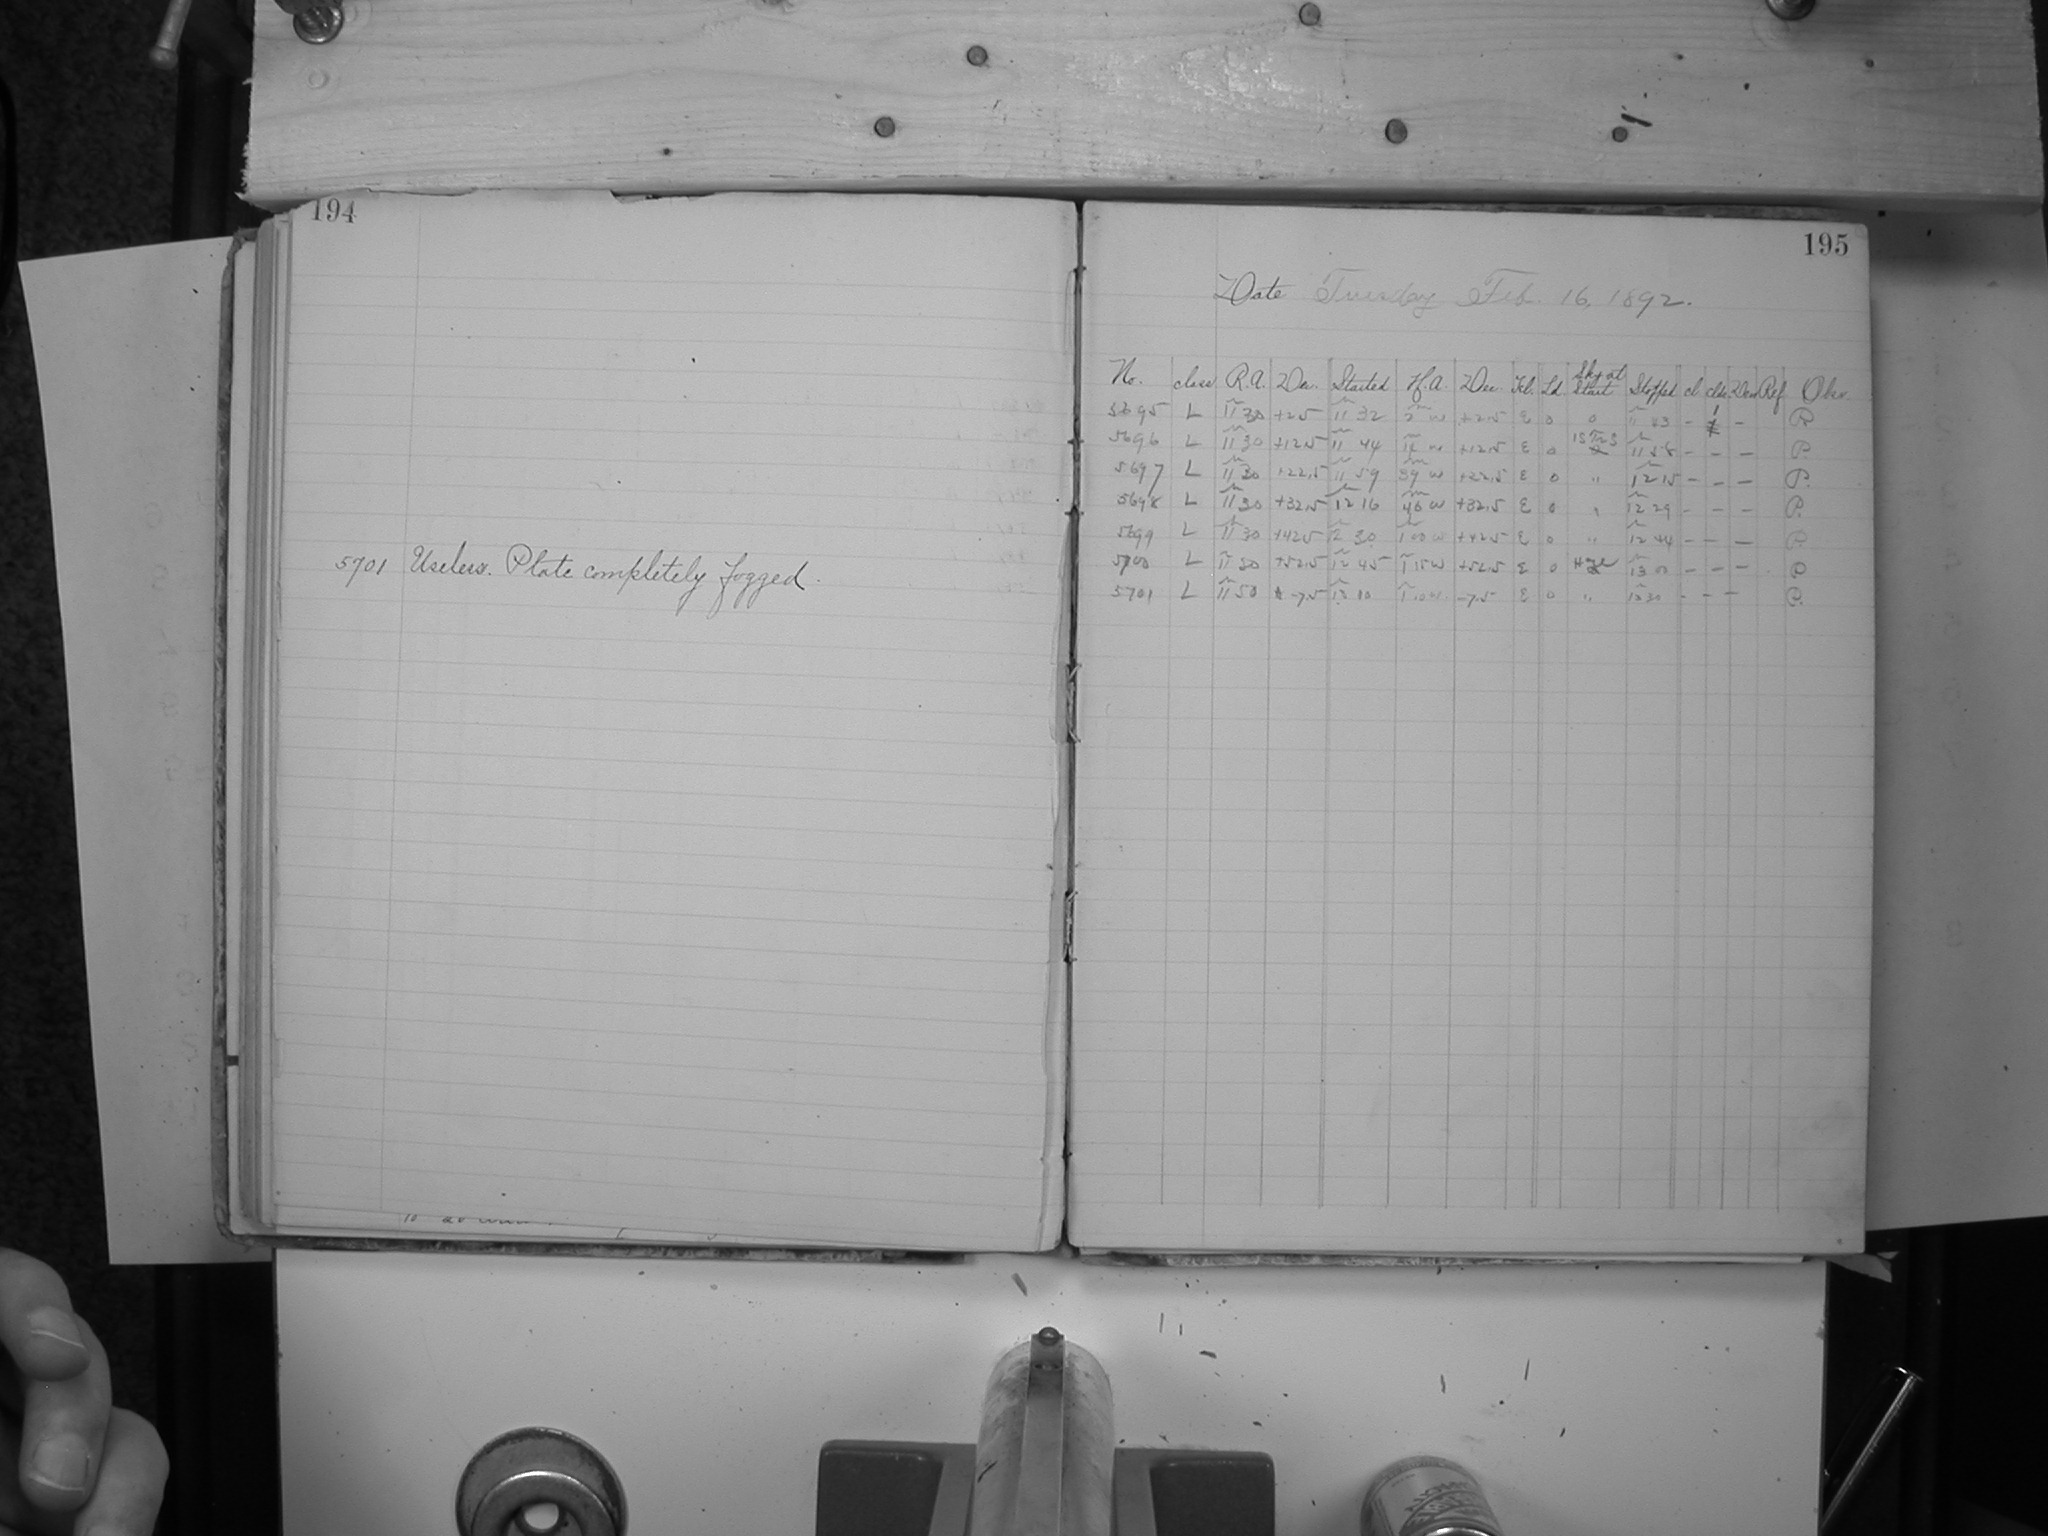 194
5701 Useless. Plate completely fogged.
195
Date Tuesday Feb. 16, 1892.
No. class R.A. Dec. Started H.A. Dec. Tel. Ld Sky at Start Stopped cl clk. Dew Ref Obsr.
5695 L 11 30 +2.5 11 32 W +2.5 E 0 0 11 43 - - P
5696 L 11 30 +12.5 11 44 W +12.5 E 0 11 58 - - - P
5697 L 11 30 +22.5 11 59 W +22.5 E 0 " 12 15 - - - P.
5698 L 11 30 +32.5 12 16 46 W +32.5 E 0 " 12 29 - - - P.
5699 L 11 30 +42.5 12 30 1 00 W +42.5 E 0 " 12 44 - - - P
5700 L 11 30 +52.5 12 45 1 15 W +52.5 E 0 Haze 13 00 - - - P
5701 L 11 50 -7.5 13 10 W -7.5 E 0 " 13 30 - - - P.